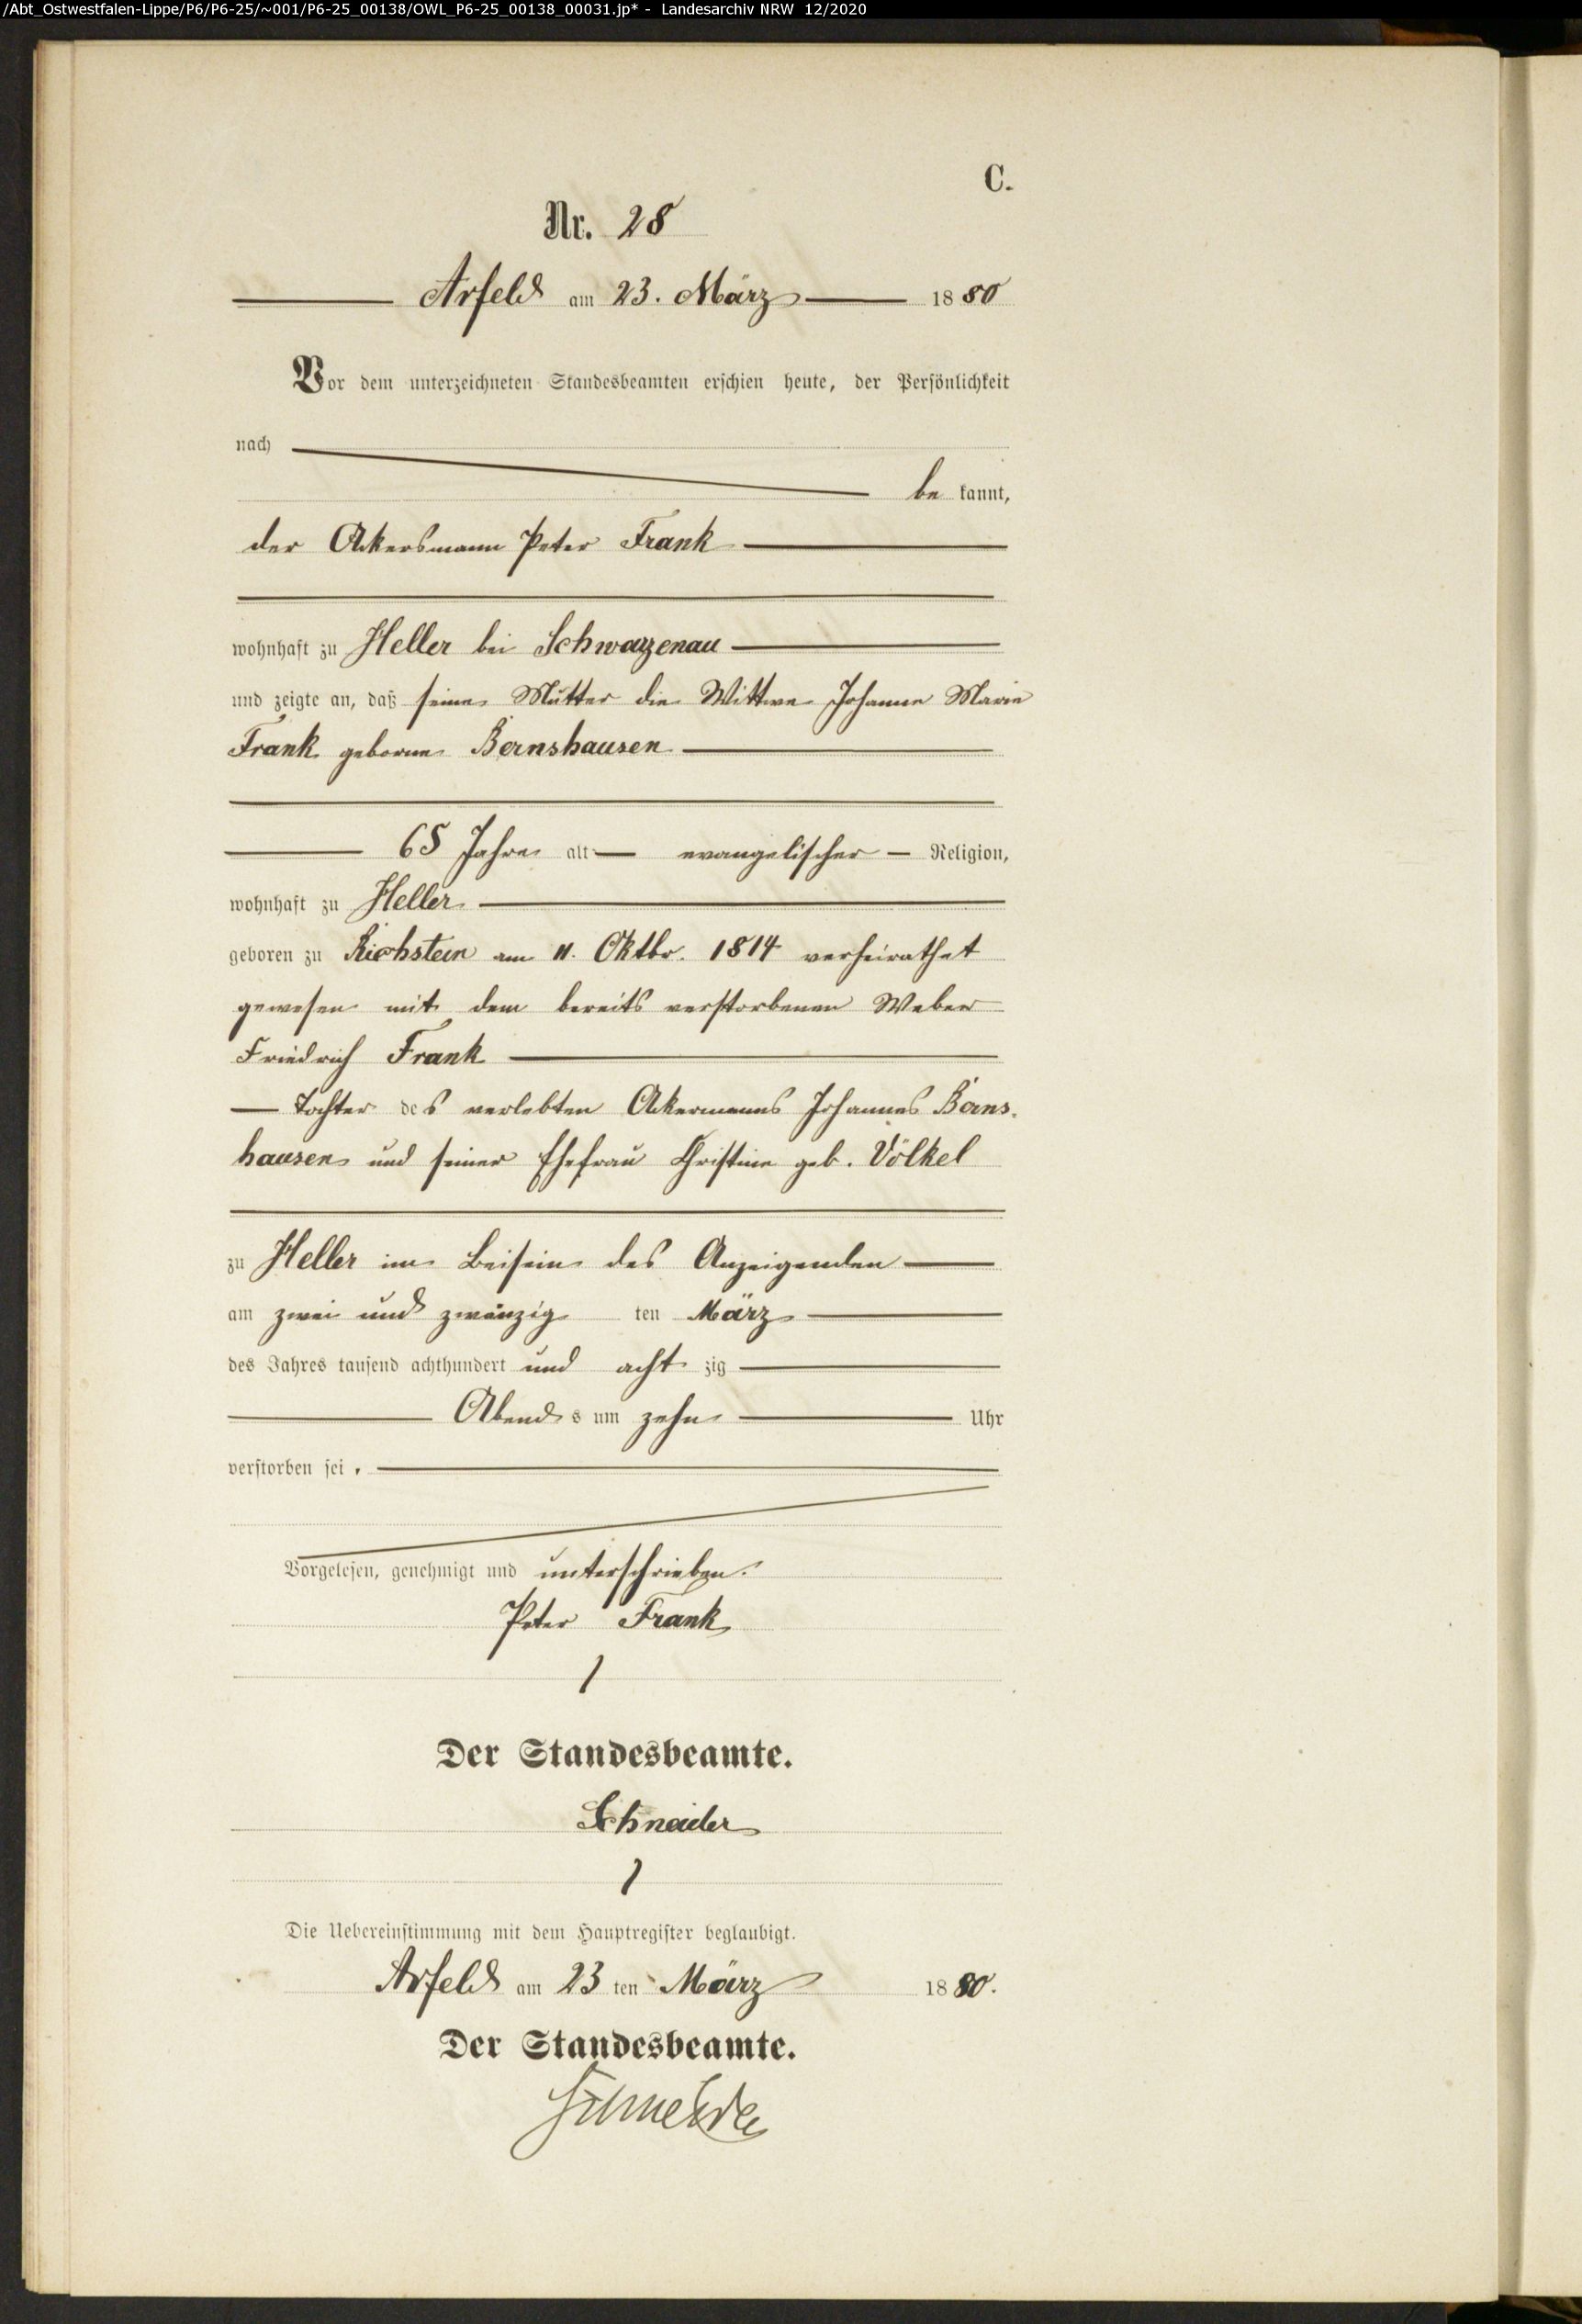 /Abt_Ostwestfalen-Lippe/P6/P6-25/~001/P6-25_00138/OWL_P6-25_00138_00031.jp* - Landesarchiv NRW 12/2020
C.
Nr. 28
Arfeld am 23. März 1880
Vor dem unterzeichneten Standesbeamten erschien heute, der Persönlichkeit
nach
be kannt,
der Ackersmann Peter Frank
wohnhaft zu Heller bei Schwarzenau
und zeigte an, daß seine Mutter die Wittwe Johanne Marie
Frank geborne Bernshausen
65 Jahre alt evangelischer Religion,
wohnhaft zu Heller
geboren zu Richstein am 11. Oktbr. 1814 verheirathet
gewesen mit dem bereits verstorbenen Weber
Friedrich Frank
Tochter des verlebten Ackermanns Johannes Berns-
hausen und seiner Ehefrau Christine geb. Völkel
zu Heller im Beisein des Anzeigenden
am zwei und zwanzig ten März
des Jahres tausend achthundert und acht zig
Abends um zehn Uhr
verstorben sei.
Vorgelesen, genehmigt und unterschrieben.
Peter Frank
Der Standesbeamte.
Schneider
Die Uebereinstimmung mit dem Hauptregister beglaubigt.
Arfeld am 23 ten März 1880.
Der Standesbeamte.
Schneider